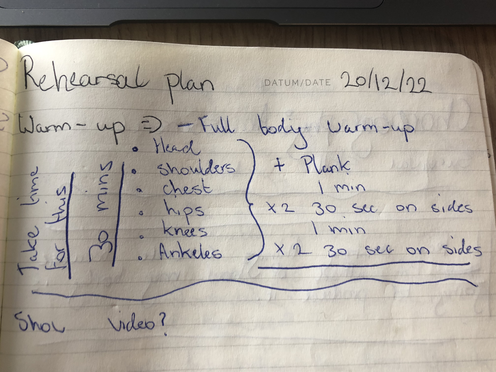 Rehearsal plan
DATUM/DATE 20/12/22
Warm-up => - Full body warm-up
Take time for this
30 mins
• Head
• shoulders
• chest
• hips
• knees
• Ankeles
+ Plank
1 min
x2 30 sec on sides
1 min
x2 30 sec on sides
Show video?